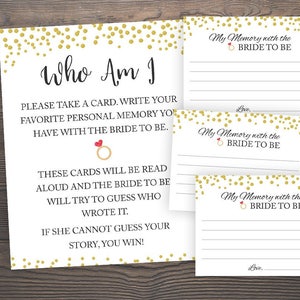 Who Am I
PLEASE TAKE A CARD. WRITE YOUR
FAVORITE PERSONAL MEMORY YOU
HAVE WITH THE BRIDE TO BE.
THESE CARDS WILL BE READ
ALOUD AND THE BRIDE TO BE
WILL TRY TO GUESS WHO
WROTE IT.
IF SHE CANNOT GUESS YOUR
STORY, YOU WIN!
My Memory with the
BRIDE TO BE
Love,
My Memory with the
BRIDE TO BE
My Memory with the
BRIDE TO BE
Love,